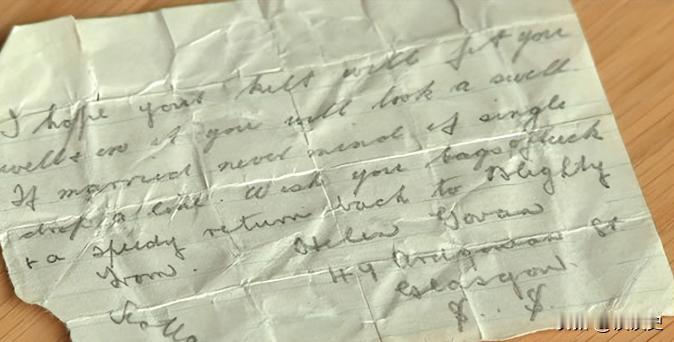 I hope your kilt will fit you
well & in it you will look a swell
If married never mind if single
drop a line. Wish you bags of luck
& a speedy return back to Blighty
from. Helen Govan
49 Ardgowan St
Glasgow.